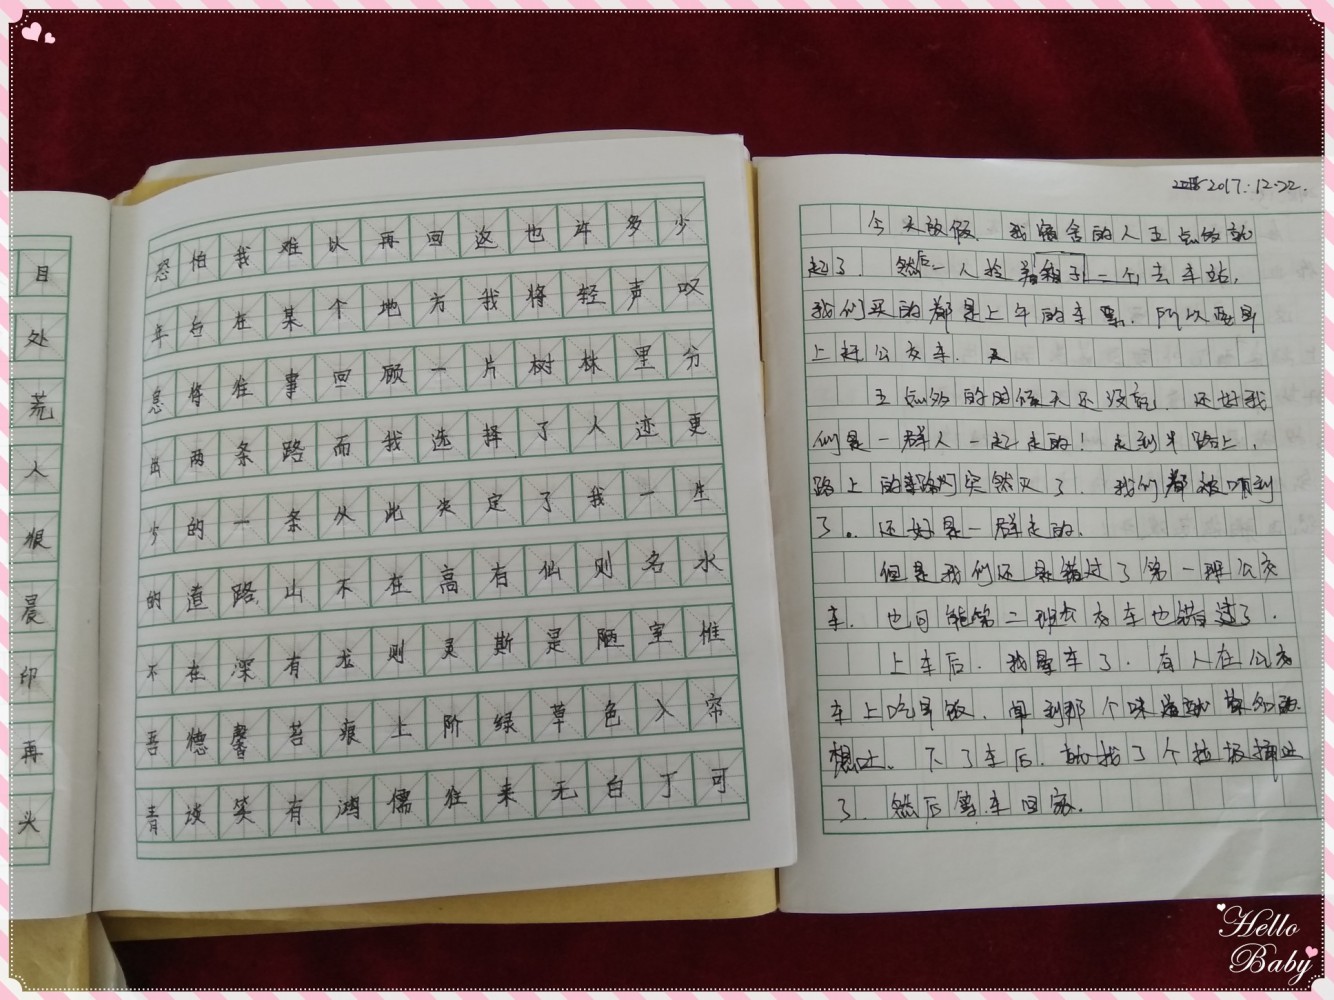 目
处
荒
人
痕
晨
印
再
头
恐怕我难以再回这也许多少
年后在某个地方我将轻声叹
息将往事回顾一片树林里分
出两条路而我选择了人迹更
少的一条从此决定了我一生
的道路山不在高有仙则名水
不在深有龙则灵斯是陋室惟
吾德馨苔痕上阶绿草色入帘
青谈笑有鸿儒往来无白丁可
2017.12.22.
今天放假.我宿舍的人五点多就
起了.然后一人拎着箱子一个去车站,
我们买的都是上午的车票.所以要早
上赶公交车.
五点多的时候天还没亮.还好我
们是一群人一起走的!走到半路上,
路上的路灯突然灭了.我们都被吓到
了。还好是一群走的.
但是我们还是错过了第一班公交
车.也可能第二班公交车也错过了.
上车后.我晕车了.有人在公交
车上吃早饭.闻到那个味道就
想吐.下了车后.就找了个垃圾桶吐
了.然后等车回家.
Hello
Baby